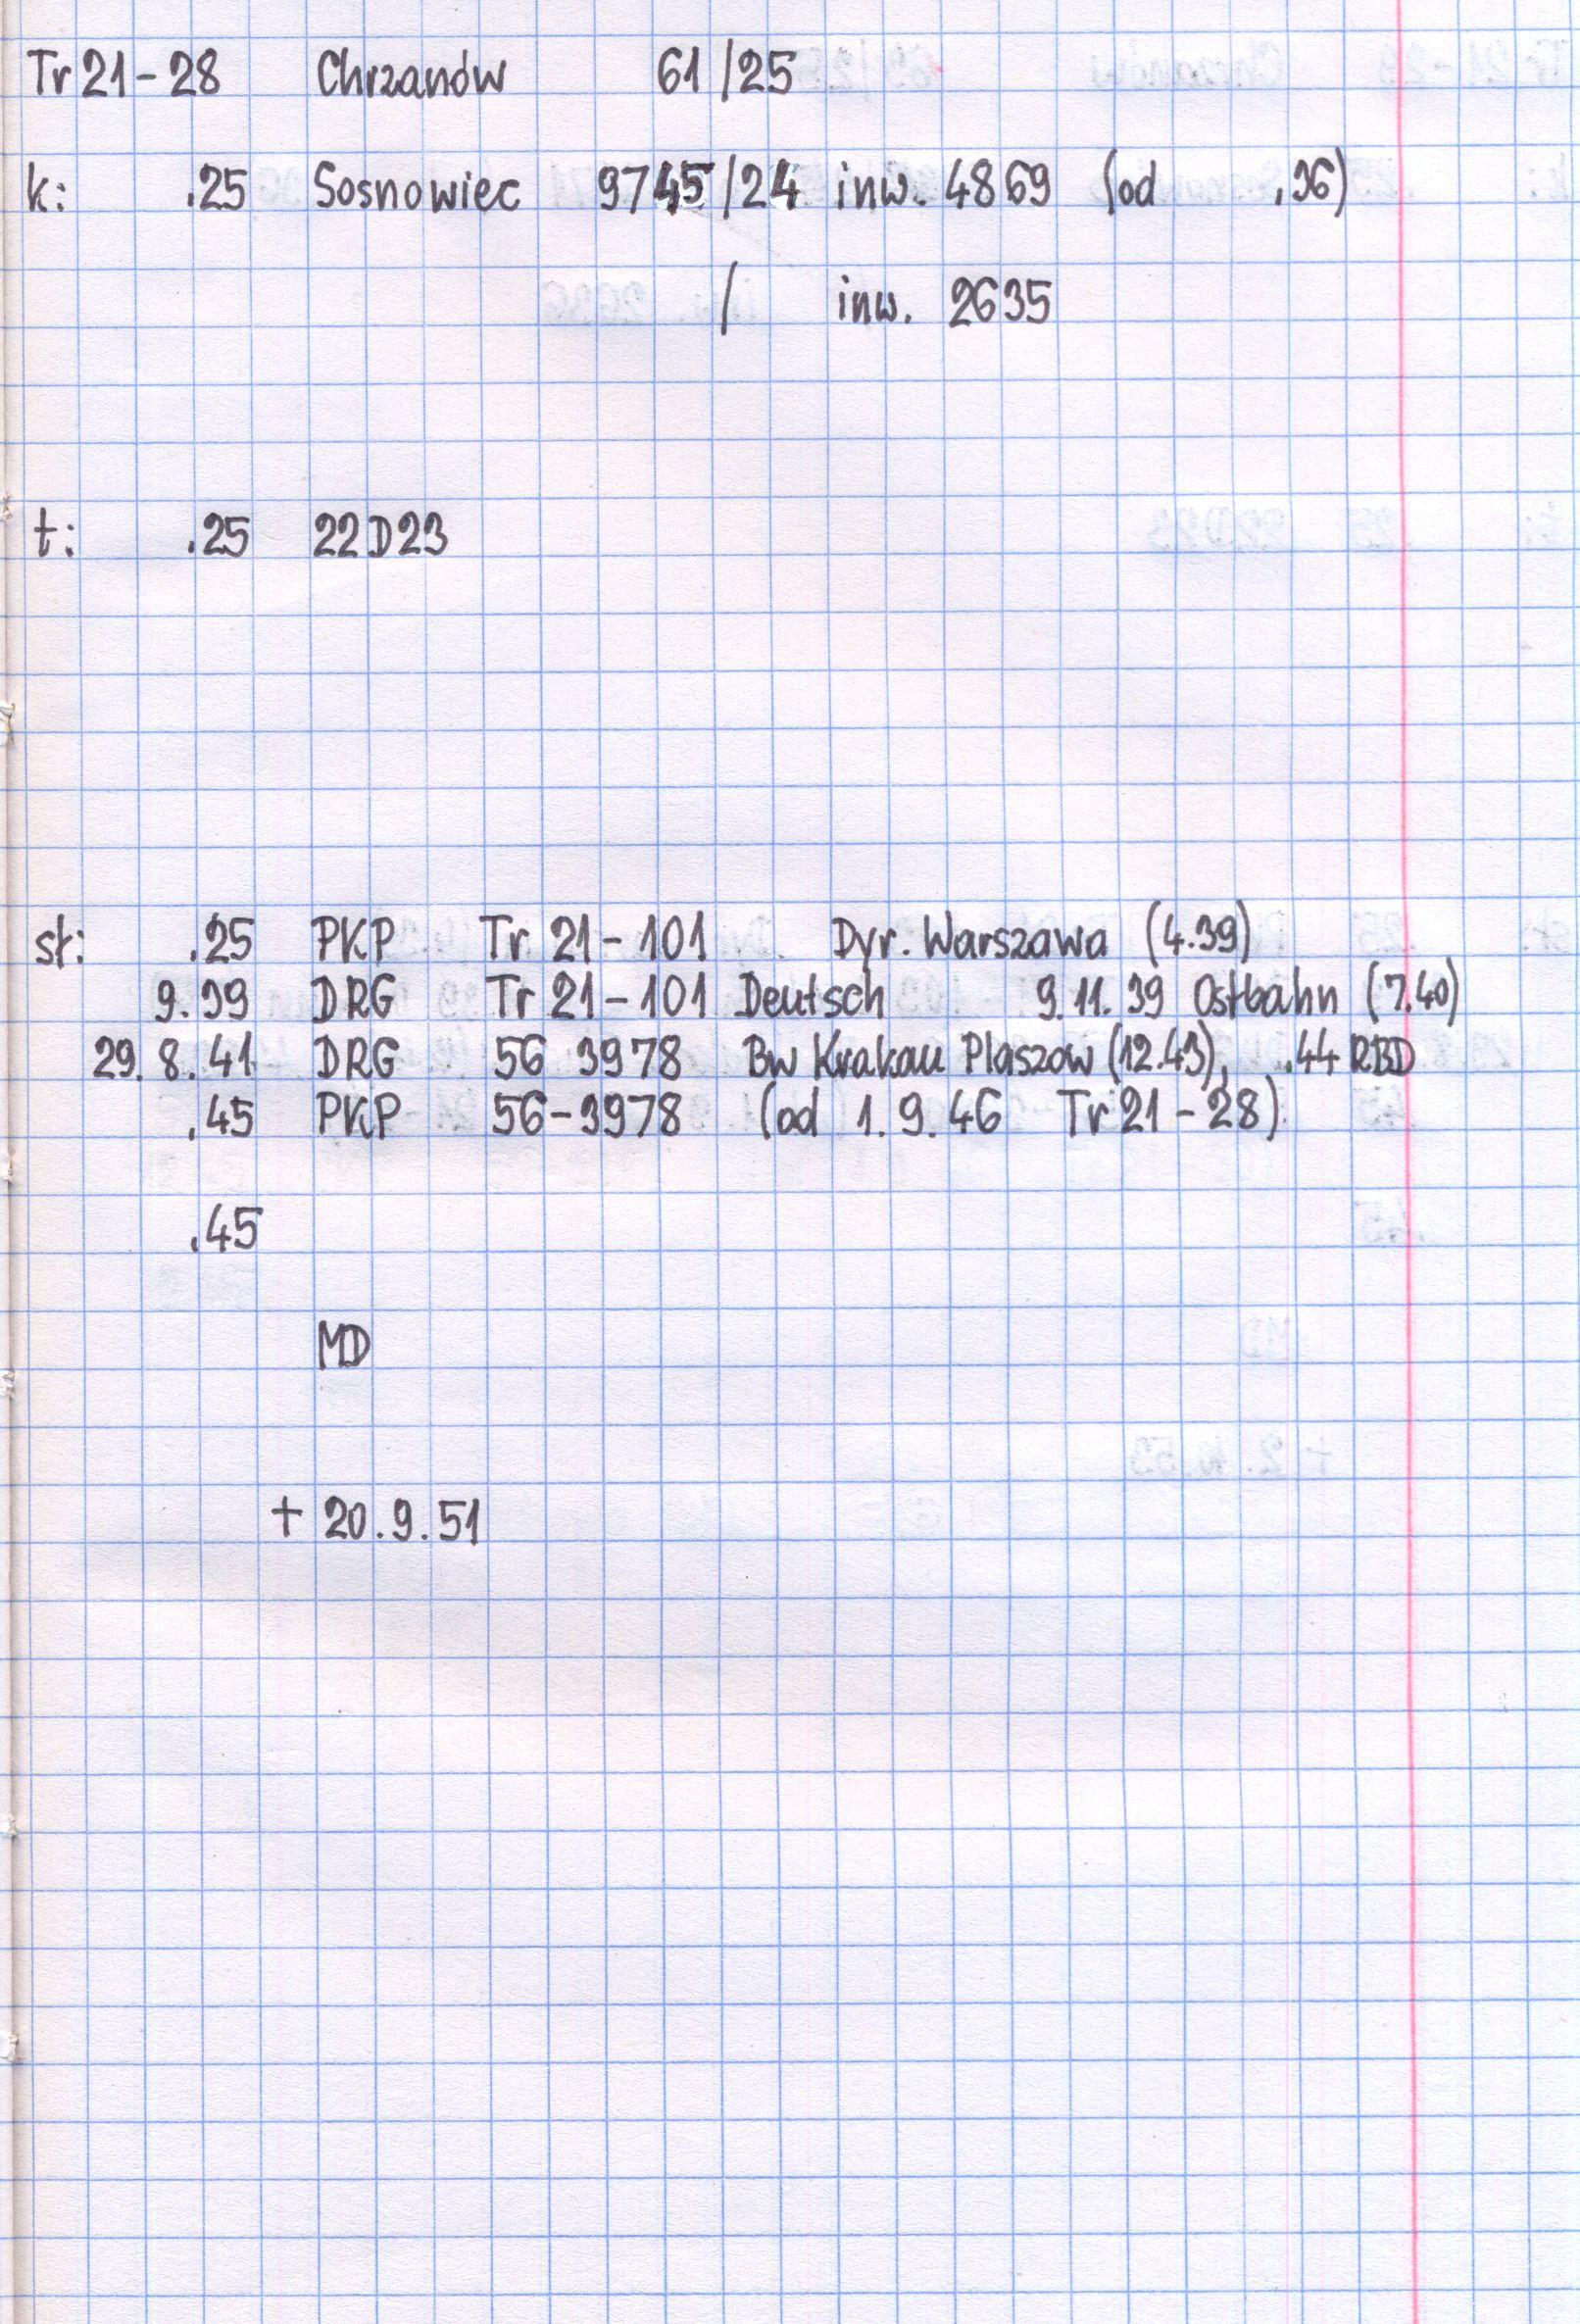 Tr 21-28 Chrzanów 61/25
k: .25 Sosnowiec 9745/24 inw. 4869 (od .36)
/ inw. 2635
t: .25 22D23
sł: .25 PKP Tr 21-101 Dyr. Warszawa (4.39)
9.39 DRG Tr 21-101 Deutsch 9.11.39 Ostbahn (7.40)
29.8.41 DRG 56 3978 Bw Krakau Plaszow (12.43), .44 RBD
.45 PKP 56-3978 (od 1.9.46 Tr 21-28)
.45
MD
+ 20.9.51